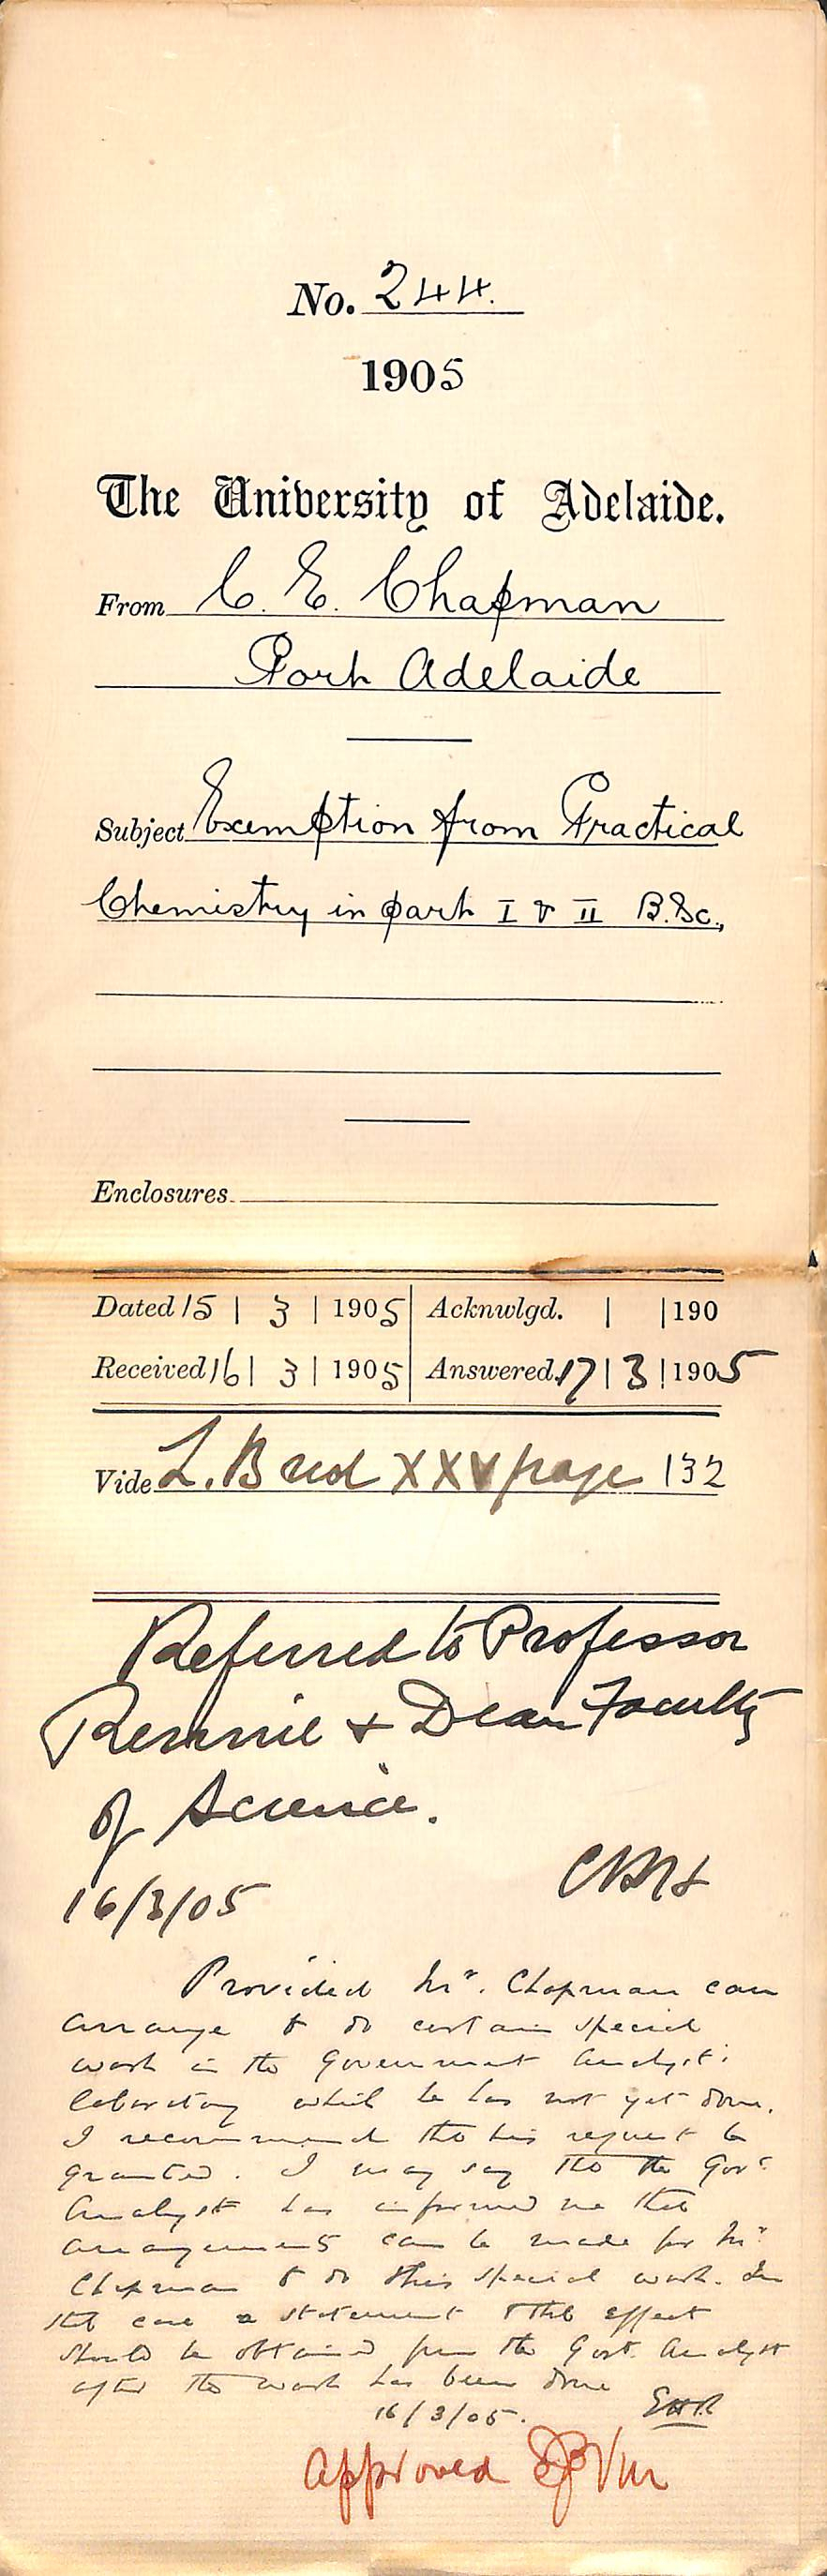 No. 244.
1905
The University of Adelaide.
From C. E. Chapman
Port Adelaide
Subject Exemption from Practical
Chemistry in part I & II B.Sc.,
Enclosures
Dated 15 | 3 | 1905 Acknwlgd. | | 190
Received 16 | 3 | 1905 Answered 17 | 3 | 1905
Vide L. B red XXV page 132
Referred to Professor
Rennie + Dean Faculty
of Science.
16/3/05
Provided Mr. Chapman can
arrange to do certain special
work in the Government Analyst's
laboratory which he has not yet done,
I recommend that his request be
granted. I may say that the Govt
Analyst has informed me that
arrangements can be made for Mr
Chapman to do this special work. In
that case a statement to that effect
should be obtained from the Govt. Analyst
after the work has been done
16/3/05. EHR
Approved